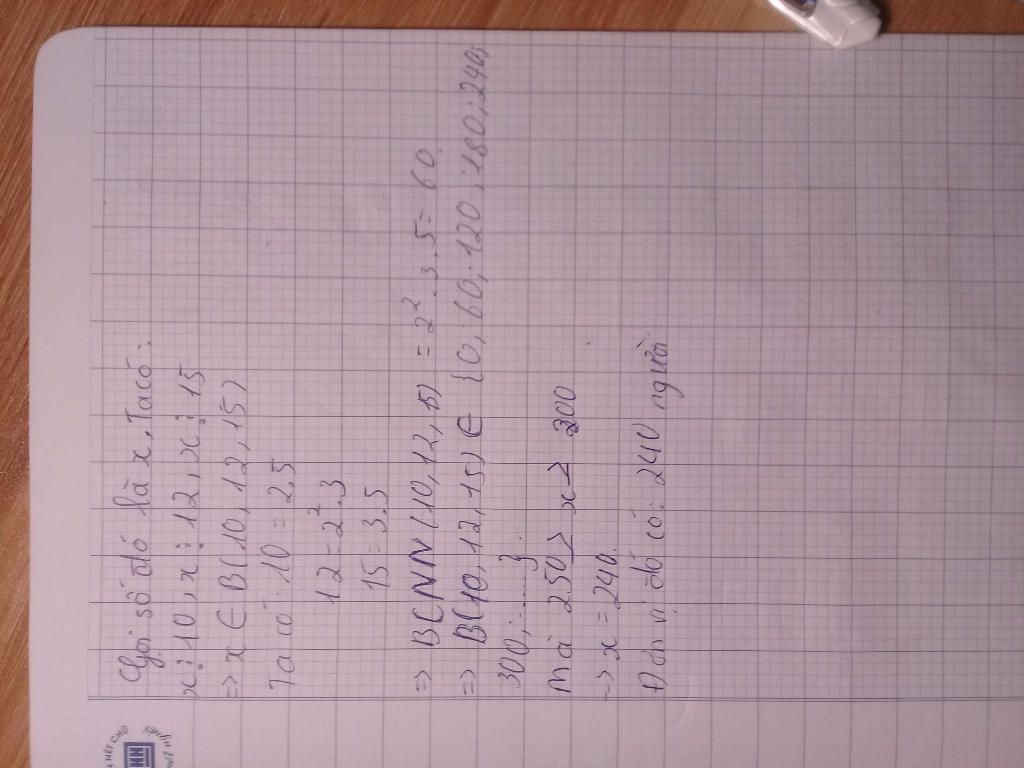 Gọi số đó là x, Ta có:
x⋮10, x⋮12, x⋮15
=> x ∈ BC(10, 12, 15)
Ta có: 10 = 2.5
12 = 2².3
15 = 3.5
=> BCNN(10, 12, 15) = 2².3.5 = 60.
=> BC(10, 12, 15) ∈ {0; 60; 120; 180; 240;
300; ......}.
Mà 250 ≥ x ≥ 200
-> x = 240.
Đơn vị đó có: 240 người.
NÉT CHỮ